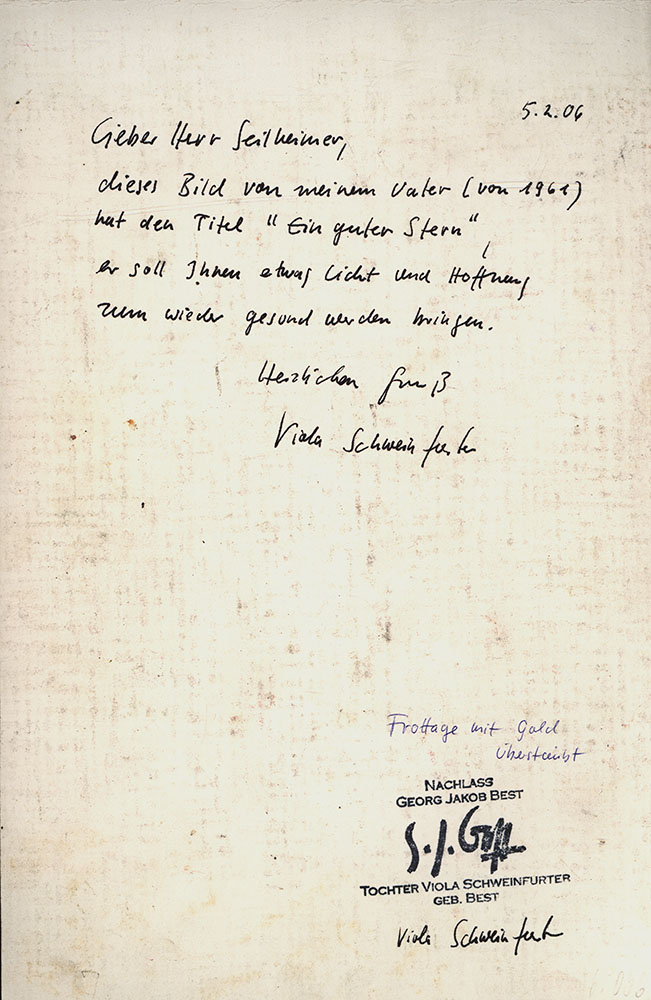 5.2.06
Lieber Herr Seilheimer,
dieses Bild von meinem Vater (von 1961)
hat den Titel "Ein guter Stern",
er soll Ihnen etwas Licht und Hoffnung
zum wieder gesund werden bringen.
Herzlichen Gruß
Viola Schweinfurter
Frottage mit Gold
überstäubt
NACHLASS
GEORG JAKOB BEST
TOCHTER VIOLA SCHWEINFURTER
GEB. BEST
Viola Schweinfurter